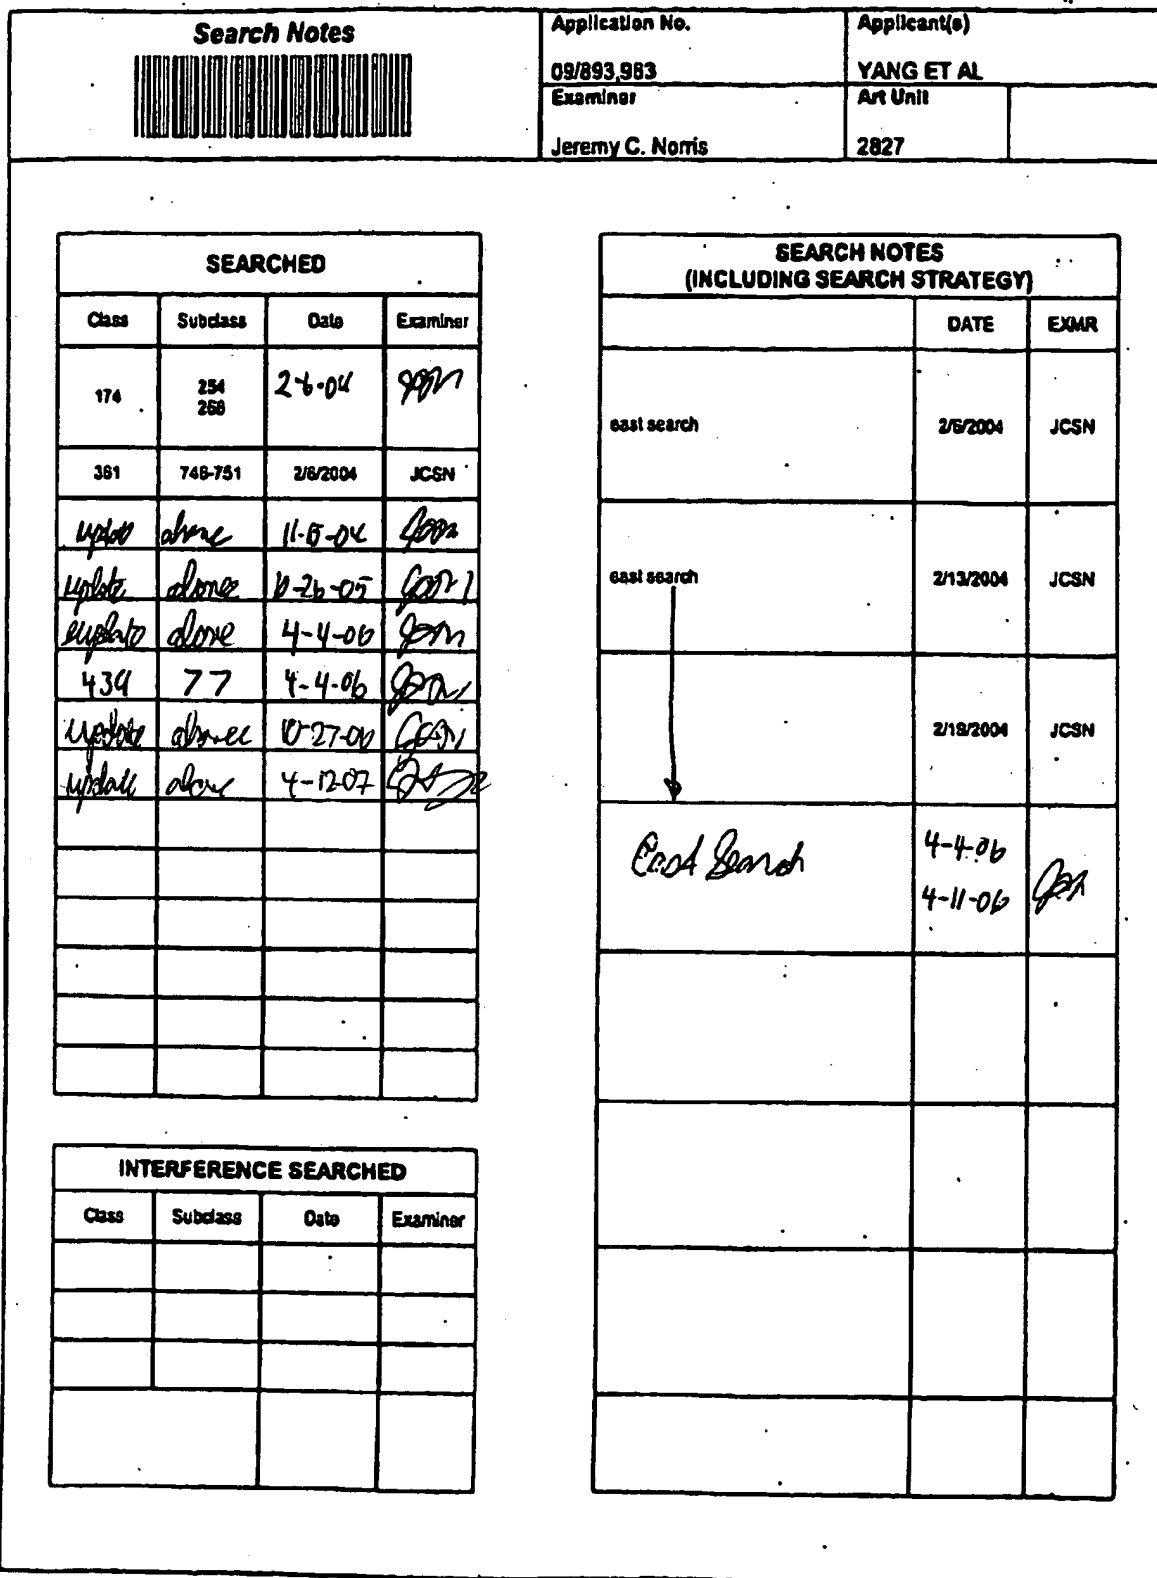 Search Notes
Application No.
Applicant(s)
09/893,983
YANG ET AL
Examiner
Art Unit
Jeremy C. Norris
2827
SEARCHED
Class Subclass Date Examiner
174 254 2-6-04
268
361 748-751 2/6/2004 JCSN
above 11-8-04
update above 10-26-05
update above 4-4-06
439 77 4-4-06
update above 10-27-06
update above 4-12-07
INTERFERENCE SEARCHED
Class Subclass Date Examiner
SEARCH NOTES
(INCLUDING SEARCH STRATEGY)
DATE EXMR
east search 2/6/2004 JCSN
east search 2/13/2004 JCSN
2/18/2004 JCSN
East Search 4-4-06
4-11-06